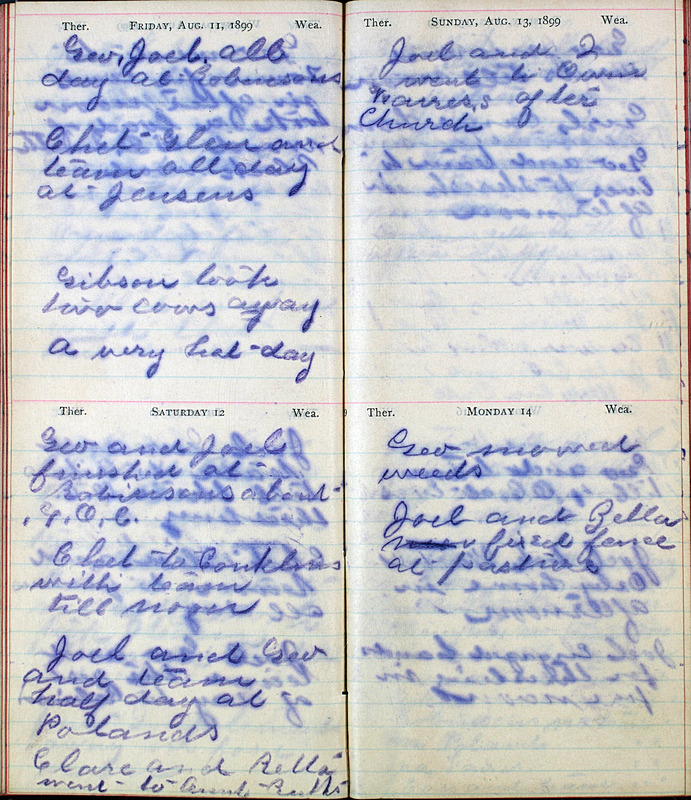 Ther. FRIDAY, AUG. 11, 1899 Wea.
Geo, Joel, all
day at Robinsons
Chet Glen and
team all day
at Jensens
Gibson took
two cows away
a very hot day
Ther. SATURDAY 12 Wea.
Geo and Joel
finished at
Robinsons about
Chet to Conklins
with team
till noon
Joel and Geo
and team
half day at
Polands
Clare and Rella
went to Aunt
Ther. SUNDAY, AUG. 13, 1899 Wea.
Joel and I
went to
after
Church
Ther. MONDAY 14 Wea.
Geo mowed
weeds
Joel and Rella
fixed fence
at pasture